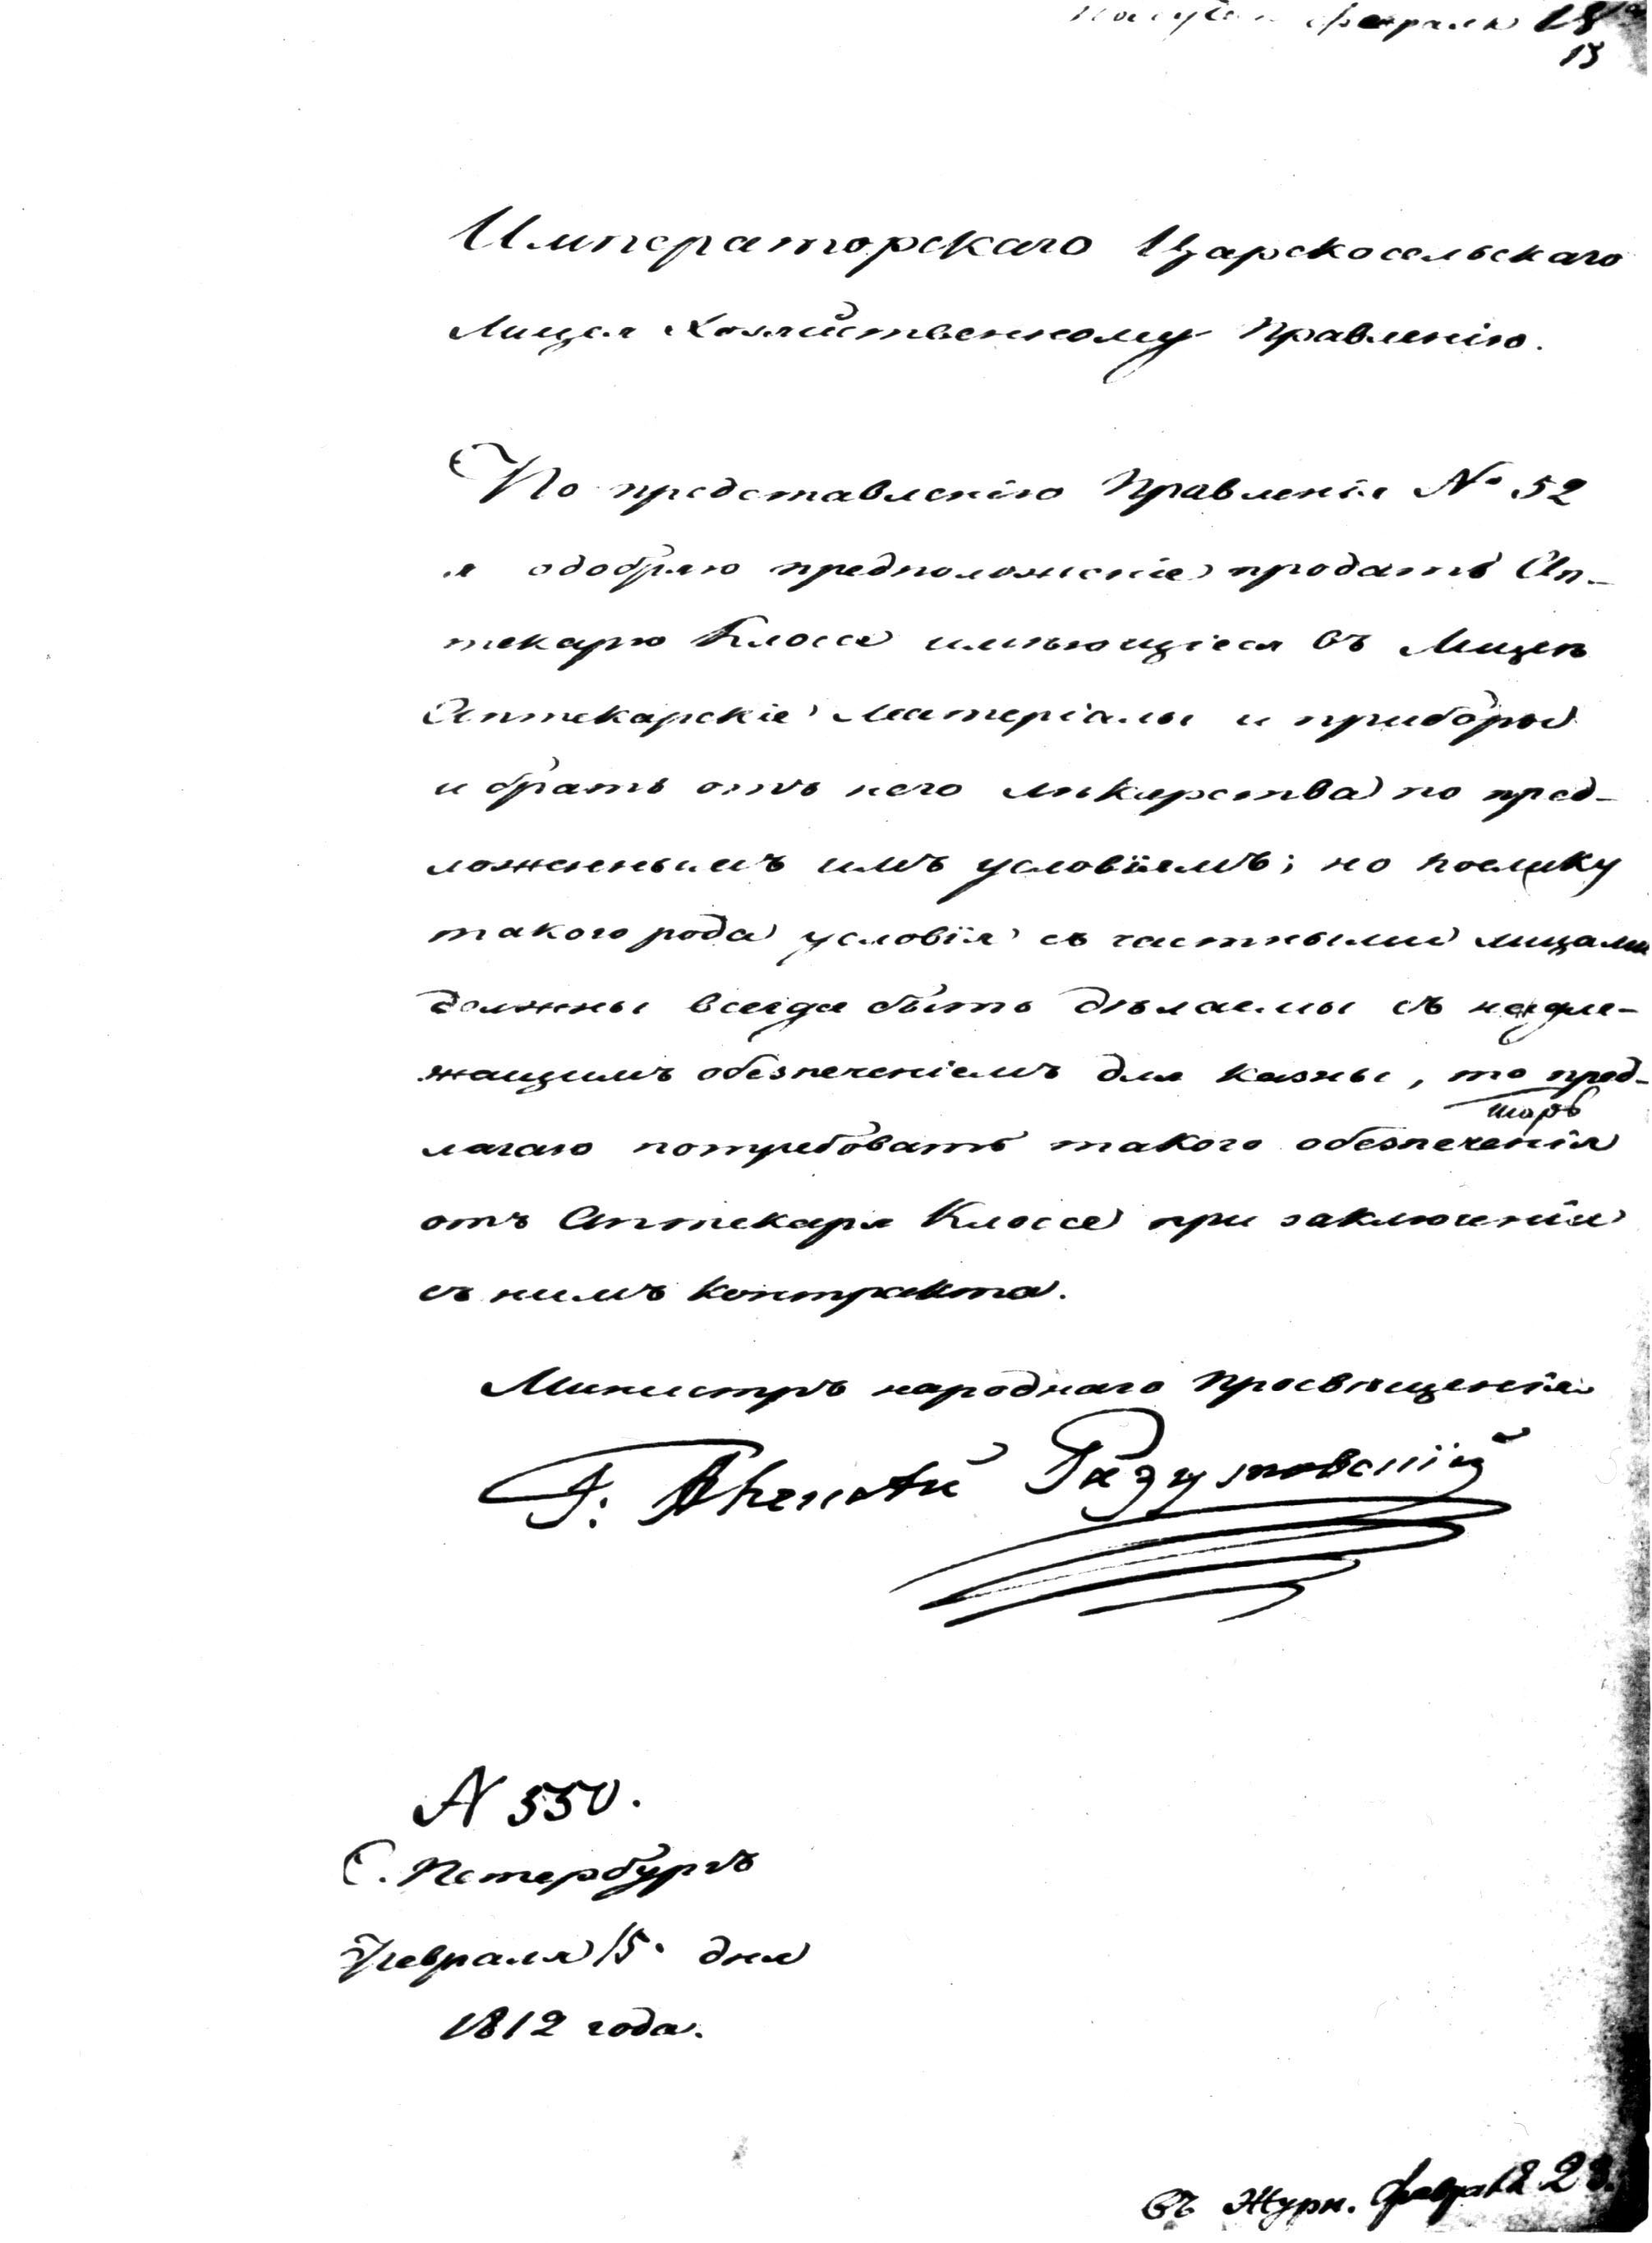 февраля 18
13
Императорскаго Царскосельскаго
Лицея Хозяйственному Правленію.
По представленію Правленія № 52
я одобряю предположеніе продать Ап-
текарю Клоссе имѣющіеся въ Лицеѣ
Аптекарскіе Матеріалы и приборы
и брать отъ него лѣкарства по пред-
ложеннымъ имъ условіямъ; но поелику
такого рода условія съ частными лицами
должны всегда быть дѣлаемы съ надле-
жащимъ обезпеченіемъ для казны, то пред-
лагаю потребовать такого обезпеченія
отъ Аптекаря Клоссе при заключеніи
съ нимъ контракта.
Министръ народнаго Просвѣщенія
Г. Алексѣй Разумовскій
N 550.
С. Петербургъ
Февраля 15. дня
1812 года.
Въ Журн. февраля 23.